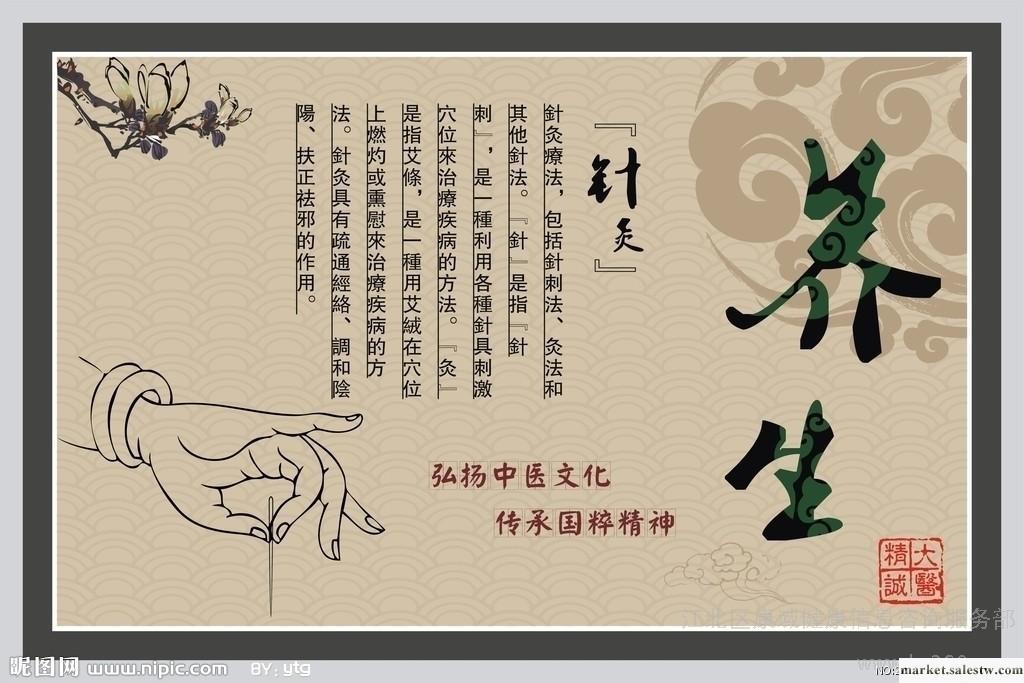 养生
『針灸』
針灸療法，包括針刺法、灸法和
其他針法。『針』是指『針
刺』，是一種利用各種針具刺激
穴位來治療疾病的方法。『灸』
是指艾條，是一種用艾絨在穴位
上燃灼或熏慰來治療疾病的方
法。針灸具有疏通經絡、調和陰
陽、扶正祛邪的作用。
弘扬中医文化
传承国粹精神
大醫精誠
昵图网 www.nipic.com BY: ytg
market.salestw.com